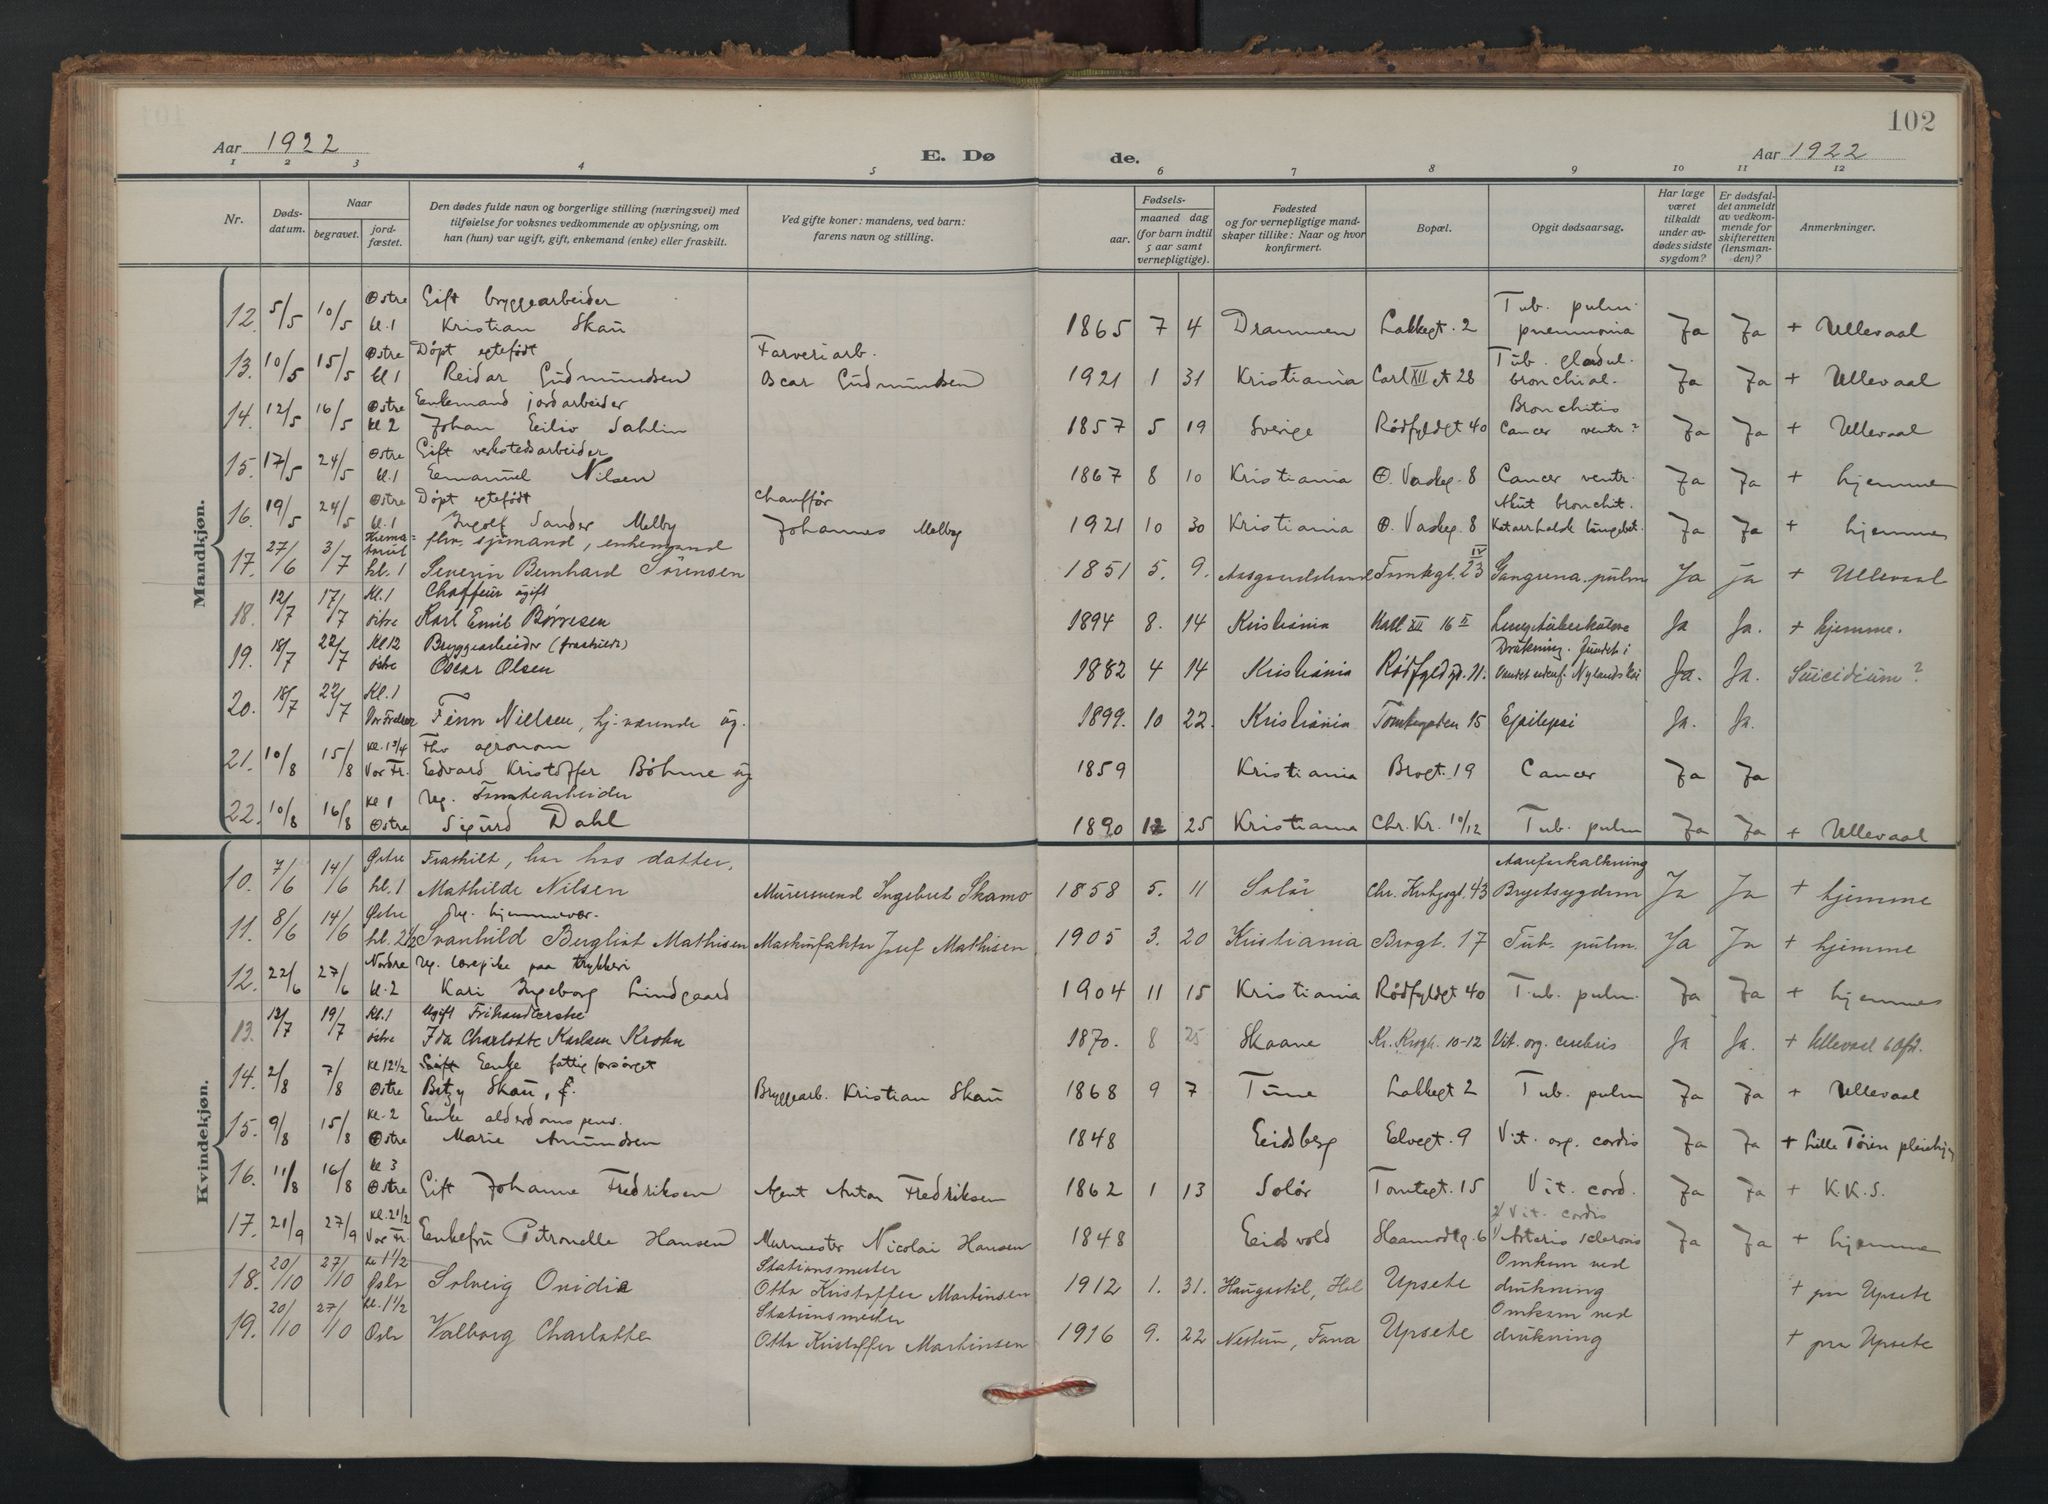 102
Aar 1922
E. Døde.
Aar 1922
1 2 3 4 5 6 7 8 9 10 11 12
Nr.
Døds-
datum.
Naar
begravet.
jord-
fæstet.
Den dødes fulde navn og borgerlige stilling (næringsvei) med
tilføielse for voksnes vedkommende av oplysning, om
han (hun) var ugift, gift, enkemand (enke) eller fraskilt.
Ved gifte koner: mandens, ved barn:
farens navn og stilling.
Fødsels-
aar.
maaned dag
(for barn indtil
5 aar samt
vernepligtige).
Fødested
og for vernepligtige mand-
skaper tillike: Naar og hvor
konfirmert.
Bopæl.
Opgit dødsaarsag.
Har læge
været
tilkaldt
under av-
dødes sidste
sygdom?
Er dødsfal-
det anmeldt
av vedkom-
mende for
skifteretten
(lensman-
den)?
Anmerkninger.
Mandkjøn.
Østre Gift bryggearbeider Tub. pulm.
12. 5/5 10/5 kl. 1 Kristian Skau 1865 7 4 Drammen Lakkegt. 2 pneumonia Ja Ja + Ullevaal
Østre Døpt egtefødt Farveriarb. Tub. gladul.
13. 10/5 15/5 kl 1 Reidar Gudmundsen Oscar Gudmundsen 1921 1 31 Kristiania Carl XII gt 28 bronchial. Ja Ja + Ullevaal
Østre Enkemand jordarbeider Bronchitis
14. 12/5 16/5 kl 2 Johan Eilio Sahlin 1857 5 19 Sverige Rødfyldgt 40 Cancer ventr? Ja Ja + Ullevaal
Østre Gift verkstedsarbeider
15. 17/5 24/5 kl.1 Emanuel Nilsen 1867 8 10 Kristiania Ø. Vaskeg. 8 Cancer ventr. Ja Ja + hjemme
Østre Døpt egtefødt Chauffør Akut bronchit.
16. 19/5 24/5 kl.1 Ingolf Sander Melby Johannes Melby 1921 10 30 Kristiania Ø. Vaskeg. 8 Katarrhalsk lungebet. Ja Ja + hjemme
fhv. sjømand, enkemand
17. 27/6 3/7 kl. 1 Severin Bernhard Sørensen 1851 5. 9. Aasgaardstrand Tomtegt. 23 IV Gangrena pulm Ja ja + Ullevaal
Kl.1 Chaffeur ugift
18. 12/7 17/7 østre Karl Emil Børresen 1894 8. 14 Kristiania Karl XII 16 II Lungetuberkulose Ja Ja. + hjemme.
Kl 12 Bryggearbeider (fraskildt) Drukning. Fundet i
19. 18/7 22/7 østre Oscar Olsen 1882 4 14 Kristiania Rødfyldgt. 11. Vandet udenf. Nylandskai Ja. Ja. Suicidium?
Kl.1
20. 18/7 22/7 Vor Frelser Finn Nielsen, hj. værende ug. 1899. 10 22. Kristiania Tomtegaden 15 Epilepsi Ja. Ja.
Kl. 1 3/4 Fhv agronom
21. 10/8 15/8 Vor Fr. Edvard Kristoffer Bøhme ug 1859 Kristiania Brogt. 19 Cancer Ja Ja
kl 1 ug. Tomtearbeider
22. 10/8 16/8 Østre Sigurd Dahl 1890 12 25 Kristiania Chr. Kr. 10/12 Tub. pulm Ja Ja + Ullevaal
Kvindekjøn.
Østre Fraskilt, har hos datter, Aareforkalkning
10. 7/6 14/6 kl. 1 Mathilde Nilsen Murersvend Ingebret Skamo 1858 5. 11 Solør Chr. Krohgsgt. 43 Brystsygdom Ja Ja + hjemme
Østre ug. hjemmevær.
11. 8/6 14/6 kl. 2 1/2 Svanhild Bergliot Mathisen Maskinfaktor Josef Mathisen 1905 3. 20 Kristiania Brogt. 17 Tub. pulm. Ja Ja + hjemme
Nordre ug. lærepike paa trykkeri
12. 22/6 27/6 kl.2 Kari Ingeborg Lindgaard 1904 11 15 Kristiania Rødfyldgt 40 Tub. pulm. Ja Ja + hjemmes
Kl.1 Ugift Frihandlerske
13. 12/7 19/7 østre Ida Charlotte Karlsen Krohn 1870. 8 25 Skaane Kr. Krogh. 10-12 Vit. org. cerebris Ja Ja. + Ullevaal 6 Afd.
Kl 12 1/2 Gift Enke fattigforsørget
14. 2/8 7/8 Østre Betzy Skau, f. Bryggearb. Kristian Skau 1868 9 7 Tune Lakkegt 2 Tub. pulm Ja Ja + Ullevaal
kl. 2 Enke alderdoms pens.
15. 9/8 15/8 Østre Marie Amundsen 1848 Eidsberg Elvegt. 9 Vit. org. cordis Ja Ja + Lille Tøien pleiehj.
kl 3
16. 11/8 16/8 Østre Gift Johanne Fredriksen Agent Anton Fredriksen 1862 1 13 Solør Tomtegt. 15 Vit. cord. Ja Ja + K.K.S.
Kl. 2 1/2 2/ Vit. cordis
17. 21/9 27/9 Vor Fr. Enkefru Petronelle Hansen Murmester Nicolai Hansen 1848 Eidsvold 6 1/ Arterio sclerosis Ja Ja + hjemme
kl 1 1/2 Stationsmester Omkom ved
18. 20/10 27/10 Oslo Solveig Ovidia Otto Kristoffer Martinsen 1912 1. 31. Haugastøl, Hol Upsete drukning + paa Upsete
kl. 1 1/2 Stationsmester Omkom ved
19. 20/10 27/10 Oslo Valborg Charlotte Otto Kristoffer Martinsen 1916 9. 22 Nestun, Fana Upsete drukning + paa Upsete